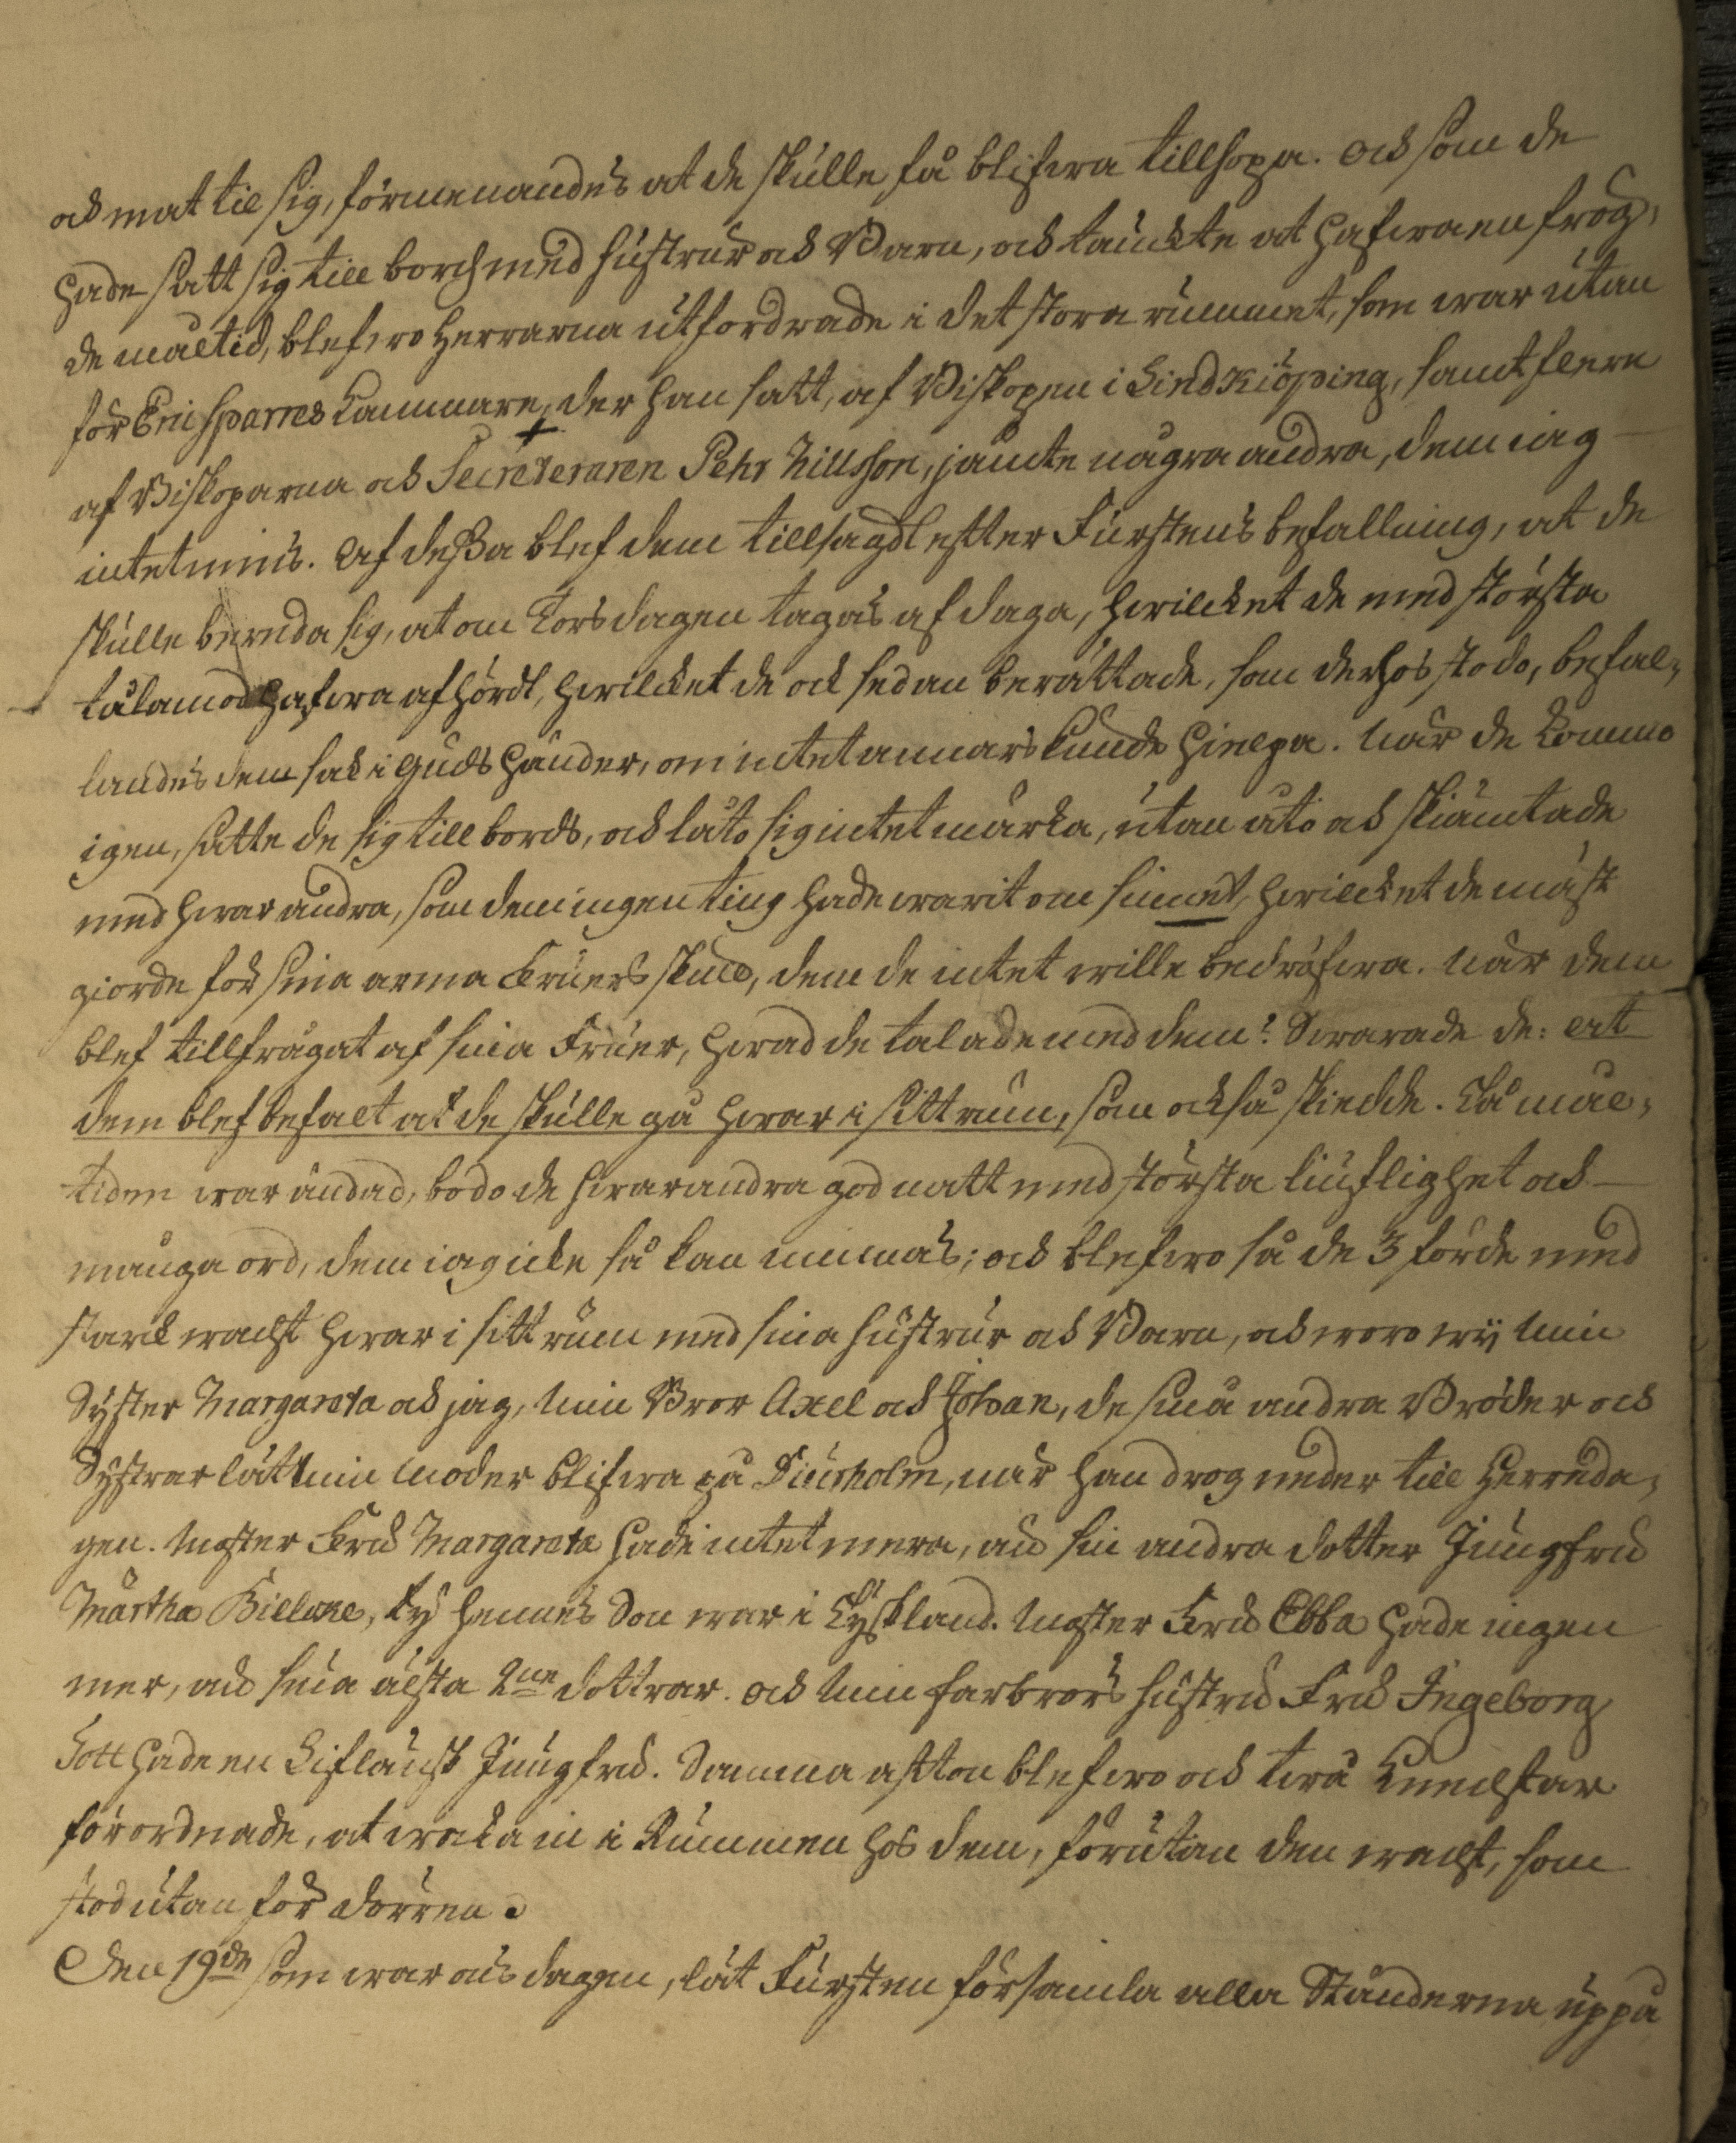 och mat til sig, förmenandes at de skulle få blifwa tillhopa. Och som de
hade satt sig till bordh med hustrur och Barn, och tänckte at hafwa en frög,
de måltid, blefwo Herrarna utfordrade i det stora rummet, som war utan
för Eric Sparres Cammare, der han satt, af Biskopen i Lindkiöping, samt flere
af Biskoparna och Secreteraren Pehr Nillsson, jämte några andra, dem iag
intet mins. Af dessa blef dem tillsagdt efter Furstens befallning, at de
skulle bereda sig, at om Torsdagen tagas af daga, hwilcket de med största
tålamod hafwa afhördt, hwilcket de och sedan berättade, som derhos stodo, befal,
landes dem sak i Guds händer, om intet annars kunde hielpa. När de kommo
igen, satte de sig till bords, och låto sig intet märka, utan åto och skiämtade
med hwar andra, som dem ingen ting hade warit om sinnet, hwilcket de mäst
giorde för sina arma Fruers skuld, dem de intet wille bedröfwa. När dem
blef tillfrågat af sina Fruer, hwad de talade med dem? Swarade de: at
dem blef befalt at de skulle gå hwar i sitt rum, som också skiedde. Då mål,
tiden war ändad, bödo de hwarandra god natt med största liuflighet och
många ord, dem iag icke så kan minnas; och blefwo så de 3 förde med
starck wackt hwar i sitt rum med sina hustrur och Barn, och woro wij min
Syster Margareta och jag, min Bror Axel och Johan, de små andra Bröder och
Systrar lätt min Moder blifwa på Diursholm, när han drog neder till Herreda,
gen. Moster Fru Margareta hade intet mera, än sin andra dotter Jungfru
Märtha Bielcke, ty hennes Son war i Tyskland. Moster Fru Ebba hade ingen
mer, än sina älsta 2ne dottrar. Och min farbrors hustru Fru Ingeborg
Tott hade en Lifländsk Jungfru. Samma afton blefwo och twå Knecktar
förordnade, at waka in i Rummen hos dem, förutan den wackt, som
stod utan för dörren.
Den 19de som war onsdagen, lät Fursten församla alla Ständerna uppå